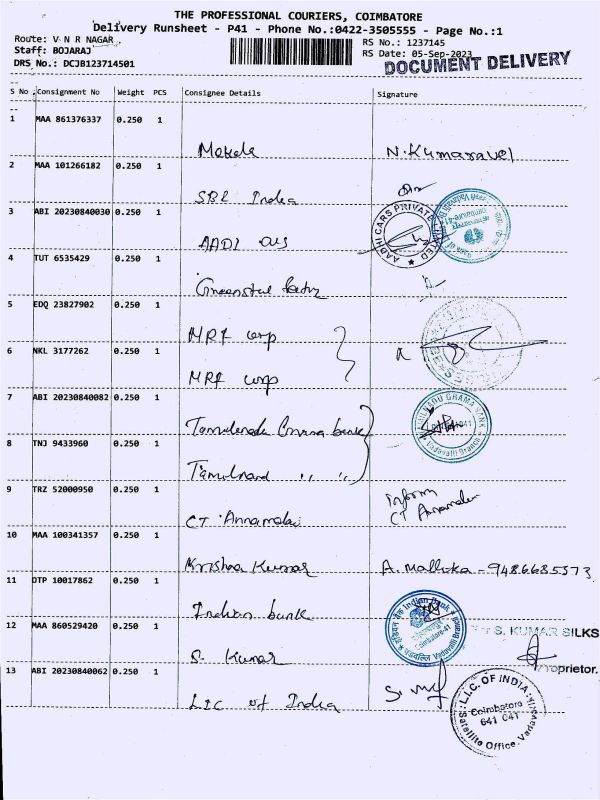 THE PROFESSIONAL COURIERS, COIMBATORE
Delivery Runsheet - P41 - Phone No.:0422-3505555 - Page No.:1
Route: V N R NAGAR
Staff: BOJARAJ
DRS No.: DCJB123714501
RS No.: 1237145
RS Date: 05-Sep-2023
DOCUMENT DELIVERY
S No Consignment No Weight PCS Consignee Details Signature
1 MAA 861376337 0.250 1
N.Kumaravel
2 MAA 101266182 0.250 1
SBI India
3 ABI 20230840030 0.250 1
AADI
AADHI CARS PRIVATE LIMITED
4 TUT 6535429 0.250 1
5 EDQ 23827902 0.250 1
MRF corp
6 NKL 3177262 0.250 1
MRF corp
7 ABI 20230840082 0.250 1
Tamilnadu Grama bank
TAMIL NADU GRAMA BANK
Vadavalli Branch
8 TNJ 9433960 0.250 1
Tamilnad " "
9 TRZ 52000950 0.250 1
CT Annamalai
Inform
CT Annamalai
10 MAA 100341357 0.250 1
Krishna Kumar A. Mallika - 9486685573
11 DTP 10017862 0.250 1
Indian bank
Indian Bank
Coimbatore-41
Vadavalli Branch
12 MAA 860529420 0.250 1
S. Kumar
S. KUMAR SILKS
Proprietor.
13 ABI 20230840062 0.250 1
LIC of India
L.I.C. OF INDIA
Coimbatore
641 041
Satellite Office, Vadavalli